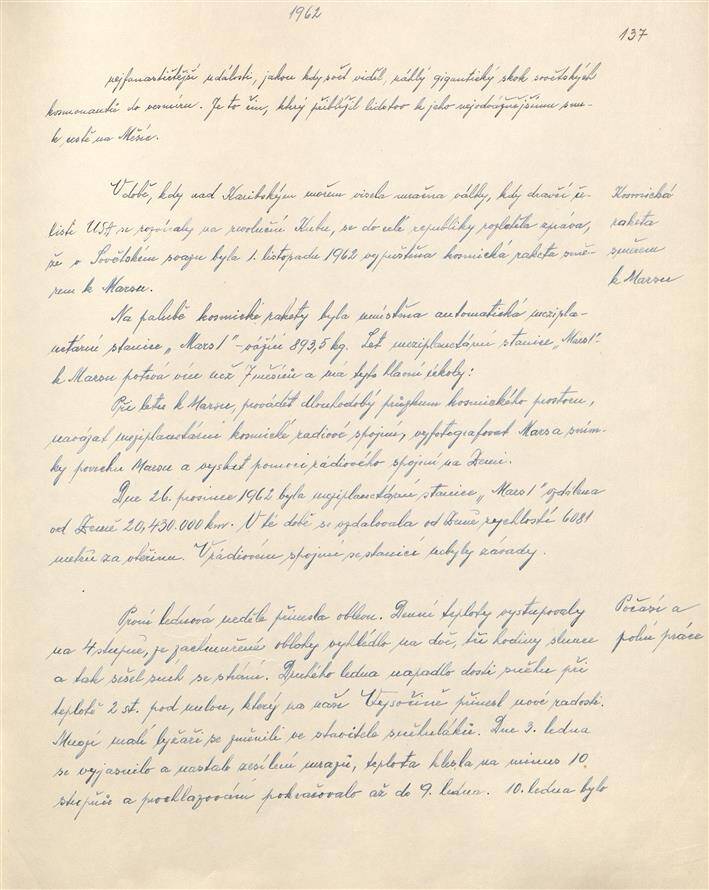 1962
137
nejfantastičtější událostí, jakou kdy svět viděl, náhlý gigantický skok sovětských
kosmonautů do vesmíru. Je to čin, který přiblížil lidstvo k jeho nejodvážnějšímu snu-
k cestě na Měsíc.
V době, kdy nad Karibským mořem visela mračna války, kdy dravčí če-
listi USA se rozvíraly na revoluční Kubu, se do celé republiky rozletěla zpráva,
že v Sovětském svazu byla 1. listopadu 1962 vypuštěna kosmická raketa smě-
rem k Marsu.
Kosmická
raketa
směrem
k Marsu
Na palubě kosmické rakety byla umístěna automatická mezipla-
netární stanice „Mars 1" - vážící 893,5 kg. Let meziplanetární stanice „Mars 1".
k Marsu potrvá více než 7 měsíců a má tyto hlavní úkoly:
Při letu k Marsu, provádět dlouhodobý průzkum kosmického prostoru,
navázat meziplanetární kosmické radiové spojení, vyfotografovat Mars a sním-
ky povrchu Marsu a vyslat pomocí rádiového spojení na Zemi.
Dne 26. prosince 1962 byla meziplanetární stanice „Mars 1" vzdálena
od Země 20,430.000 km. V té době se vzdalovala od Země rychlostí 6081
metrů za vteřinu. V rádiovém spojení se stanicí nebyly závady.
První lednová neděle přinesla oblevu. Denní teploty vystupovaly
na 4 stupně, ze zachmuřené oblohy vyhlédlo na dvě, tři hodiny slunce
a tak sešel sníh se strání. Druhého ledna napadlo dosti sněhu při
teplotě 2 st. pod nulou, který na naší Vysočině přinesl nové radosti.
Mnozí malí lyžaři se změnili ve stavitele sněhuláků. Dne 3. ledna
se vyjasnilo a nastalo zesílení mrazů, teplota klesla na minus 10
stupňů a prochlazování pokračovalo až do 9. ledna. 10. ledna bylo
Počasí a
polní práce